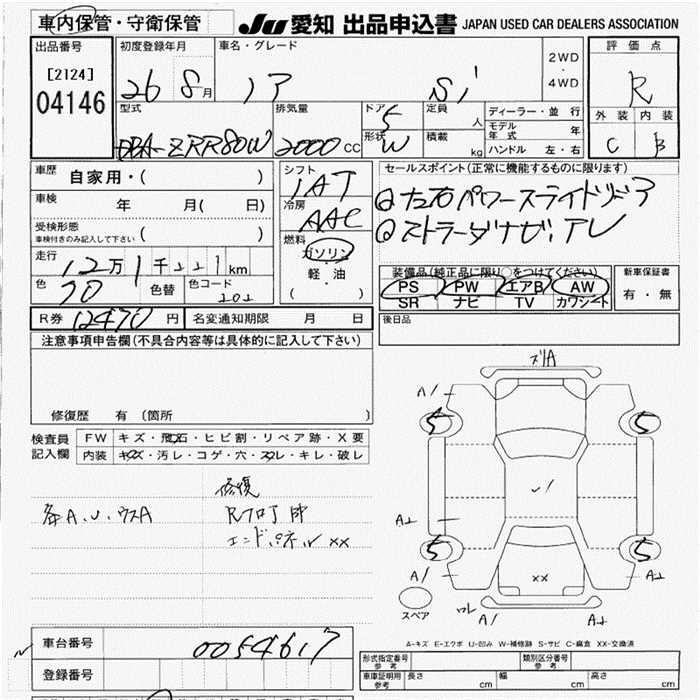 車内保管・守衛保管 JU 愛知 出品申込書 JAPAN USED CAR DEALERS ASSOCIATION
出品番号 初度登録年月 車名・グレード 2WD ・ 4WD 評価点
[2124] 04146 26 8月 Si R
型式 排気量 ドア 5 定員 人 ディーラー・並行 外装 内装
DBA-ZRR80W 2000CC 形状 W 積載 kg モデル年式 年 C B
ハンドル 左・右
車歴 自家用・( ) シフト IAT セールスポイント(正常に機能するものに限ります)
車検 年 月( 日) 冷房 AAC 左右パワースライドドア
受検形態 車検付きのみ記入して下さい ( ) 燃料 ガソリン・軽・油 ( ) ストラーダナビ、
走行 12万1千221km 装備品(純正品に限り○をつけてください) 新車保証書
色 70 色替 色コード 202 PS PW エアB AW 有・無
SR ナビ TV カワシート
R券 12470円 名変通知期限 月 日 後日品
注意事項申告欄(不具合内容等は具体的に記入して下さい)
修復歴 有 (箇所 )
検査員記入欄 FW キズ・飛石・ヒビ割・リペア跡・X要
内装 キズ・汚レ・コゲ・穴・スレ・キレ・破レ
修復
A、U、ウスA
エンドパネル xx
A1
5 5
A2
5 5
A1 xx A2
スペア
A1 A2
A-キズ E-エクボ U-凹み W-補修跡 S-サビ C-腐食 XX-交換済
車台番号 0054617
登録番号
形式指定番号 参考 類別区分番号 参考
車庫証明用 参考 長さ cm 幅 cm 高さ cm